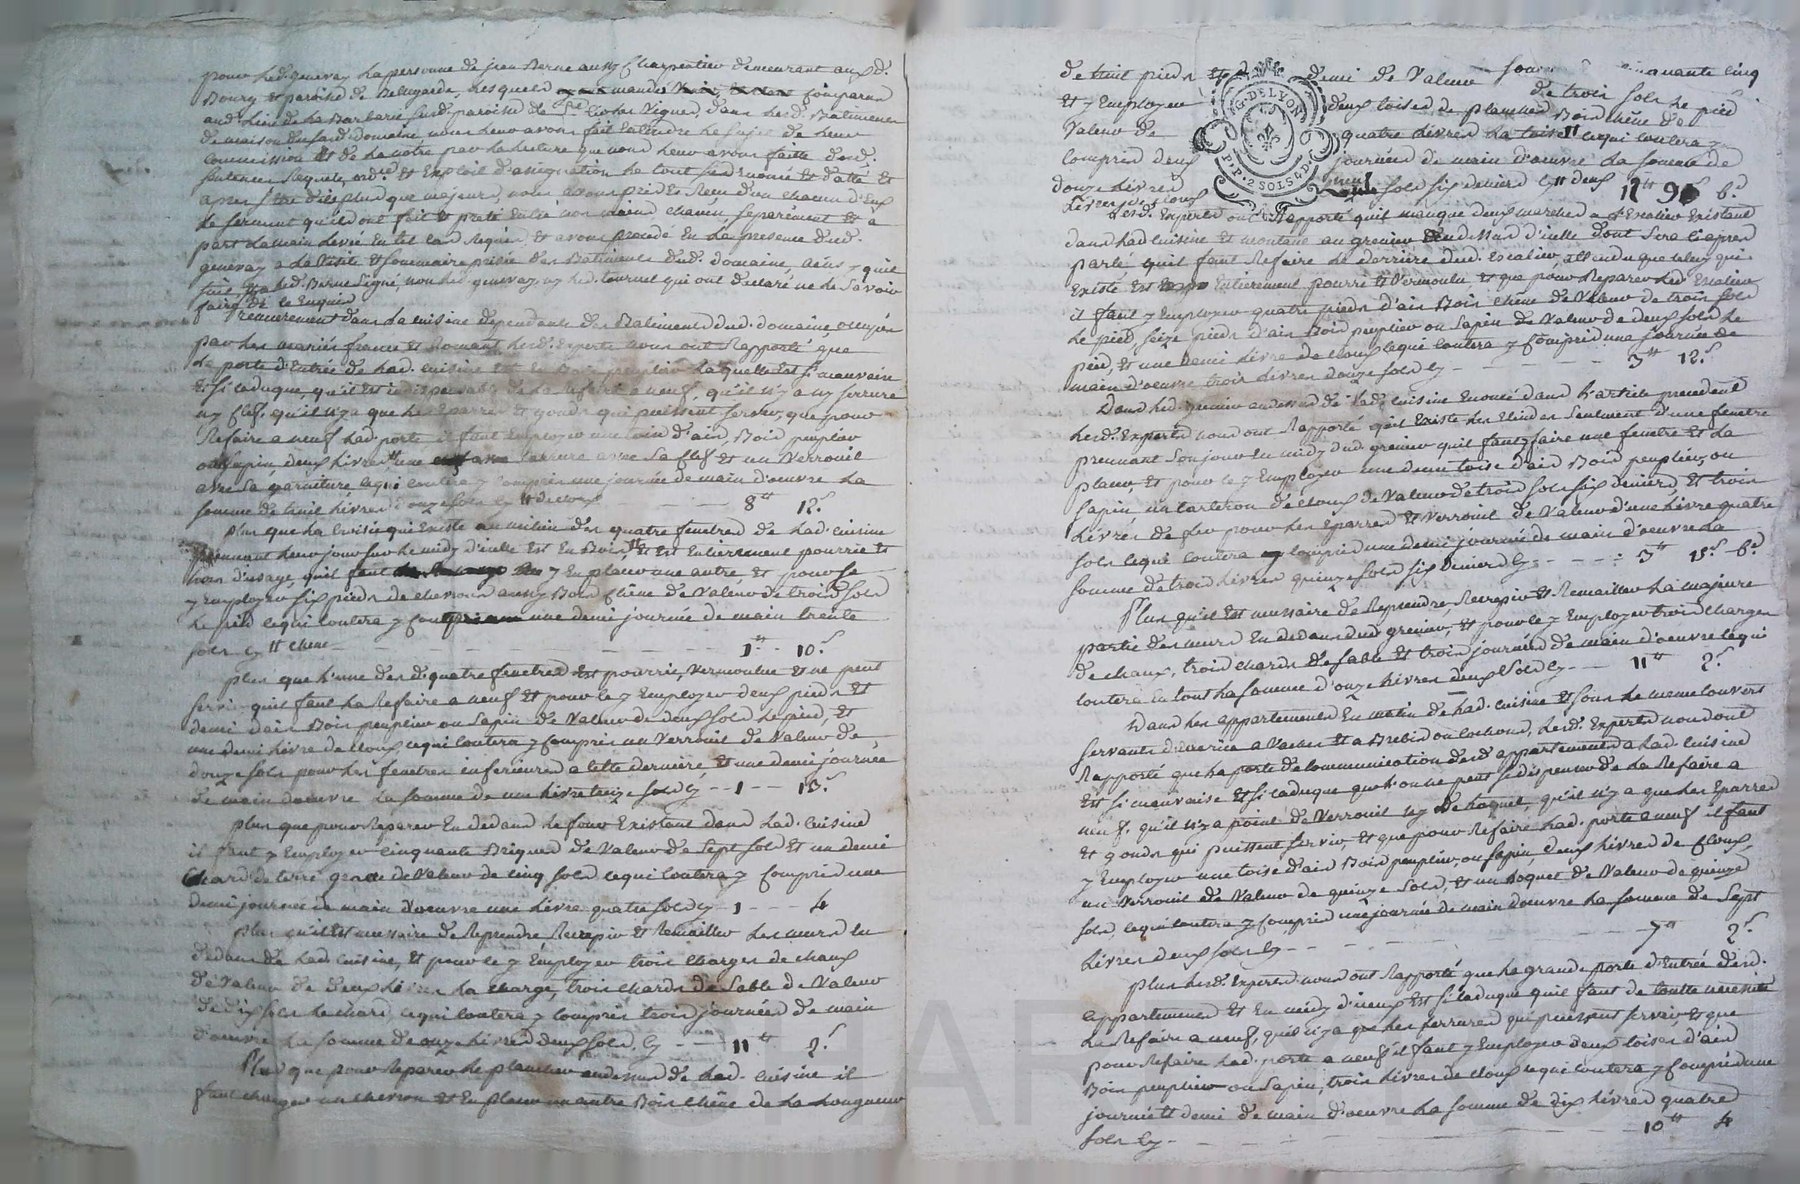 pour led. genevay la personne de jean Berne aussy Charpentier demeurant aud.
Bourg et paroisse de Bellegarde, lesquels mandés comparus
aud. lieu de la Barbarie susd. paroisse de lad. Vigne, dans lesd. Batimens
de maison dud. domaine nous leur avons fait Entendre le sujet de leur
commission et de la notre par la lecture que nous leur avons faitte desd.
sentence Requete, ordce et Exploit d'assignation le tout sus Enoncé et datté et
apres s'etre dits plus que majeurs, nous avons pris et Reçu d'un chacun d'Eux
le serment qu'ils ont fait et preté Entre nos mains chacun, separément et a
part la main levée En tel cas Requis, et avons procédé En la presence dud.
genevay a la Visite et sommaire prisée des Batimens dud. domaine, ainsy qu'il
suit led. Berne Signé, non led. genevay ny led. tournel qui ont declaré ne le savoir
faire de ce Enquis
Premierement dans la cuisine dependante des Batimens dud. domaine occupée
par les mariés france et Romant, lesd. Experts nous ont Rapporté que
la porte d'Entrée de lad. cuisine est en Bois peuplier laquelle Est si mauvaise
Et si caduque, qu'il Est indispensable de la Refaire a neuf, qu'il n'y a ny serrure
ny clef, qu'il n'y a que les Eparres et gonds qui puissent servir, que pour
Refaire a neuf lad. porte il faut Employer une toise d'ais, Bois peuplier
ou sapin, deux livres une serrure avec sa clef et un Verrouil
avec sa garniture ce qui coutera y compris une journée de main d'oeuvre la
somme de huit livres douze sols cy # de cloux 8# 12s
Plus que la croisée qui Existe au milieu des quatre fenetres de lad. cuisine
prennant leur jour sur le midy d'icelle Est En Bois, et Est Entierement pourrie et
hors d'usage, qu'il faut y En placer une autre, et pour ce
y Employer six pieds de chevron aussy Bois chêne de Valeur de trois sols
le pied ce qui coutera y compris une demi journée de main trente
sols cy # chene 1# 10s
plus que l'une desd. quatre fenetres est pourrie, Vermoulue et ne peut
servir qu'il faut la Refaire a neuf et pour ce y Employer deux pieds et
demi d'ais Bois peuplier ou sapin de Valeur de deux sols le pied, et
une demi livre de cloux ce qui coutera y compris un Verrouil de Valeur de
douze sols pour les fenetres inferieures a cette derniere, et une demi journée
de main d'oeuvre la somme de une livre treize sols cy 1 13s
plus que pour Reparer En dedans le four Existant dans lad. cuisine
il faut y Employer cinquante Briques de Valeur de sept sols et un demi
Chard de terre grasse de Valeur de cinq sols ce qui coutera y compris une
demi journée de main d'oeuvre une livre quatre sols cy 1 4
plus qu'il Est necessaire de Reprendre Recrepir et Remailler les murs En
dedans de lad. cuisine, et pour ce y Employer trois charges de chaux
de Valeur de deux livres la charge, trois chards de sable de Valeur
de dix sols le chard, ce qui coutera y compris trois journées de main
d'oeuvre la somme de onze livres deux sols, cy 11# 2s
Plus que pour Reparer le plancher audessus de lad. cuisine il
faut changer un chevron et En placer un autre Bois chêne de la longueur
de huit pieds et demi de Valeur cinquante cinq
et y Employer de trois sols le pied
deux toises de planches Bois chêne de
Valeur de quatre livres la toise # ce qui coutera y
compris deux journées de main d'oeuvre la somme de
douze livres neuf sols six deniers cy # deux 12# 9s 6d
livres de cloux
Lesd. Experts ont Rapporté qu'il manque deux marches a l'Escalier Existant
dans lad. cuisine et montant au grenier audessus d'icelle dont sera ciaprès
parlé, qu'il faut Refaire le derriere dud. Escalier, attendu que celuy qui
Existe Est Entierement pourri et Vermoulu, et que pour Reparer led. Escalier
il faut y Employer quatre pieds d'ais Bois chêne de Valeur de trois sols
le pied, seize pieds d'ais Bois peuplier ou sapin de Valeur de deux sols le
pied, et une demi livre de cloux ce qui coutera y compris une journée de
main d'oeuvre trois livres douze sols cy 3# 12s
Dans led. grenier audessus de lad. cuisine Enoncé dans l'article precedent
lesd. Experts nous ont Rapporté qu'il Existe les Elindes seulement d'une fenetre
prennant son jour En midy dud. grenier qu'il faut y faire une fenetre et la
placer, et pour ce y Employer une demi toise d'ais Bois peuplier, ou
sapin un carteron de cloux de Valeur de trois sols six deniers, et trois
livres de fer pour les Eparres et Verrouil de Valeur d'une livre quatre
sols ce qui coutera y compris une demi journée de main d'oeuvre la
somme de trois livres quinze sols six deniers cy 3# 15s 6d
Plus qu'il Est necessaire de Reprendre, Recrepir et Remailler la majeure
partie des murs En dedans dud. grenier, et pour ce y Employer trois charges
de chaux, trois chards de sable et trois journées de main d'oeuvre ce qui
coutera En tout la somme d'onze livres deux sols cy 11# 2s
Dans les appartements En matin de lad. cuisine et sous le meme couvert
servants d'Ecurie a Vaches et a Brebis ou cochons, lesd. Experts nous ont
Rapporté que la porte de communication desd. appartements a lad. cuisine
est si mauvaise et si caduque que l'on ne peut se dispenser de la Refaire a
neuf, qu'il n'y a point de Verrouil ny de loquet, qu'il n'y a que les Eparres
et gonds qui puissent servir et que pour Refaire lad. porte a neuf il faut
y Employer une toise d'ais Bois peuplier, ou sapin, deux livres de cloux,
un Verrouil de Valeur de quinze sols, et un loquet de Valeur de quinze
sols, ce qui coutera y compris une journée de main d'oeuvre la somme de sept
livres deux sols cy 7# 2s
Plus lesd. Experts nous ont Rapporté que la grande porte d'Entrée desd.
appartements et En midy d'iceux Est si caduque qu'il faut de toutte necessité
la Refaire a neuf, qu'il n'y a que les ferrures qui puissent servir, et que
pour Refaire lad. porte a neuf il faut y Employer deux toises d'ais
Bois peuplier ou sapin, trois livres de cloux ce qui coutera y compris une
journée et demi de main d'oeuvre la somme de dix livres quatre
sols cy 10# 4
G. DE LYON
P.P. 2 SOLS 4 D.